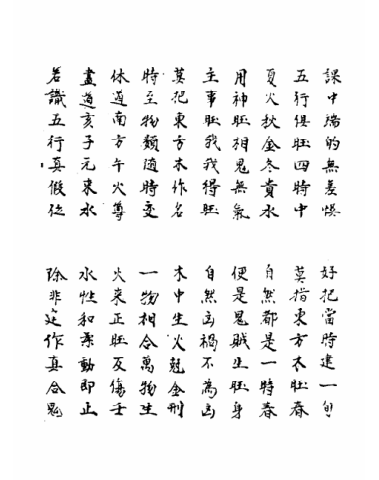 課中端的無差悮　好把當時建一旬
五行俱旺四時中　莫指東方木旺春
夏火秋金冬貴水　自然都是一時春
用神旺相鬼無氣　便是鬼賊生旺身
主事旺我我得旺　自然凶禍不為凶
莫把東方木作名　木中生火尅金刑
時至物類隨時變　一物相合萬物生
休道南方午火尊　火來正旺反傷壬
盡道亥子元來水　水性和柔動即止
若識五行真假從　除非作真合鬼